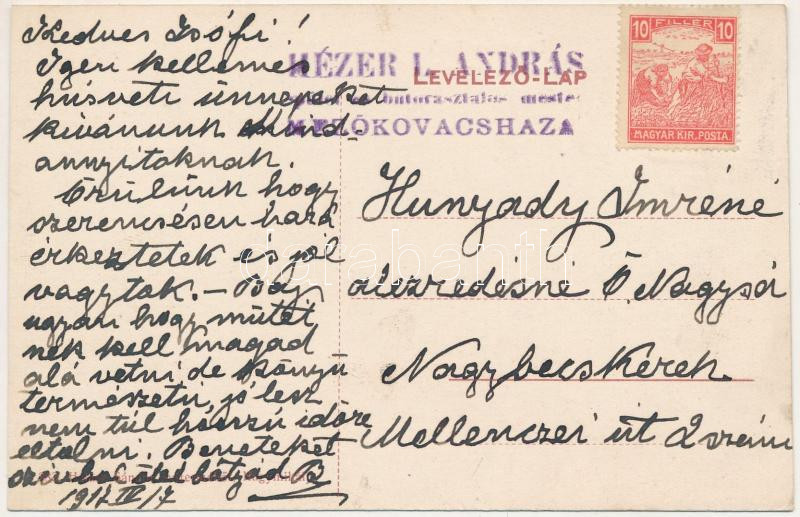 Kedves Zsófi!
Igen kellemes
húsvéti ünnepeket
kivánunk Mind-
annyitoknak.
Örülünk hogy
szerencsésen haza
érkeztetek is jól
vagytok. – Baj
ugyan hogy műtét
nek kell magad
alá vetni de könyü
természetü, jó lesz
nem túl hosszú időre
eltolni. Beneteket
ölel bátyád B
1917 IV/7
HÉZER L. ANDRÁS
LEVELEZŐ-LAP
MEZŐKOVACSHAZA
10 FILLÉR 10
MAGYAR KIR. POSTA
Hunyady Imréné
alezredesné Ő Nagysá
Nagybecskerek
Mellenczei út 2 szám
darabanth